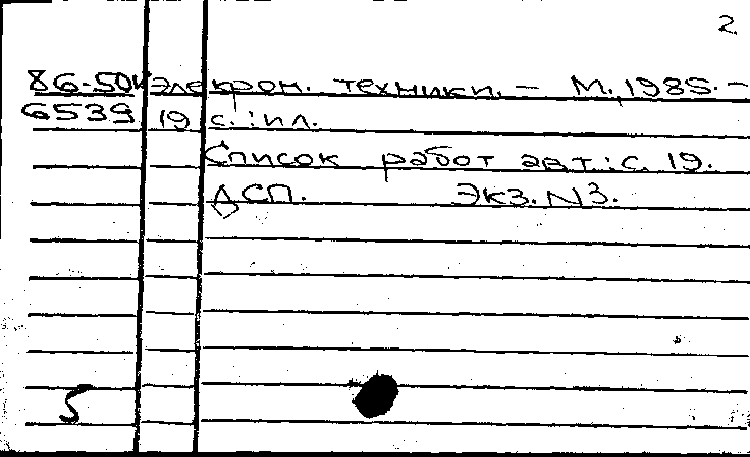 2
86-50к электрон. техники. - М., 1985. -
6539 19 с. : ил.
Список работ авт.: с. 19.
ДСП. Экз. N3.
5